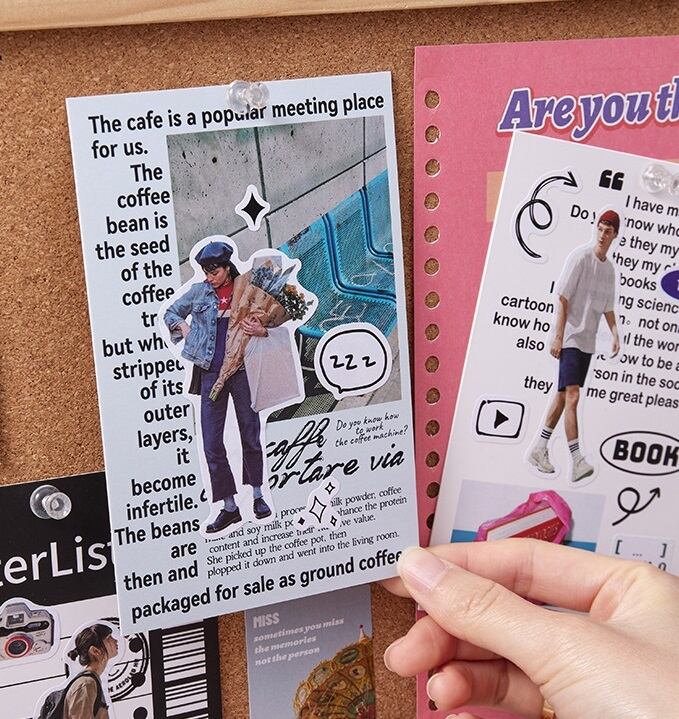 The cafe is a popular meeting place
for us.
The
coffee
bean is
the seed
of the
coffee
but
stripped
of its
outer
layers,
it
become
infertile.
The beans
are
then and
packaged for sale as ground coffee
zzz
Do you know how
to work
the coffee machine?
caffè
portare via
milk powder, coffee
and soy milk enhance the protein
content and increase value.
She picked up the coffee pot, then
plopped it down and went into the living room.
Are you th
“
I have m
Do now who
e they my
they my
books
ng scienc
cartoon not on
know ho l the wor
also ow to be a
son in the soc
they me great pleas
BOOK
[ ... ]
terList
MISS
sometimes you miss
the memories
not the person